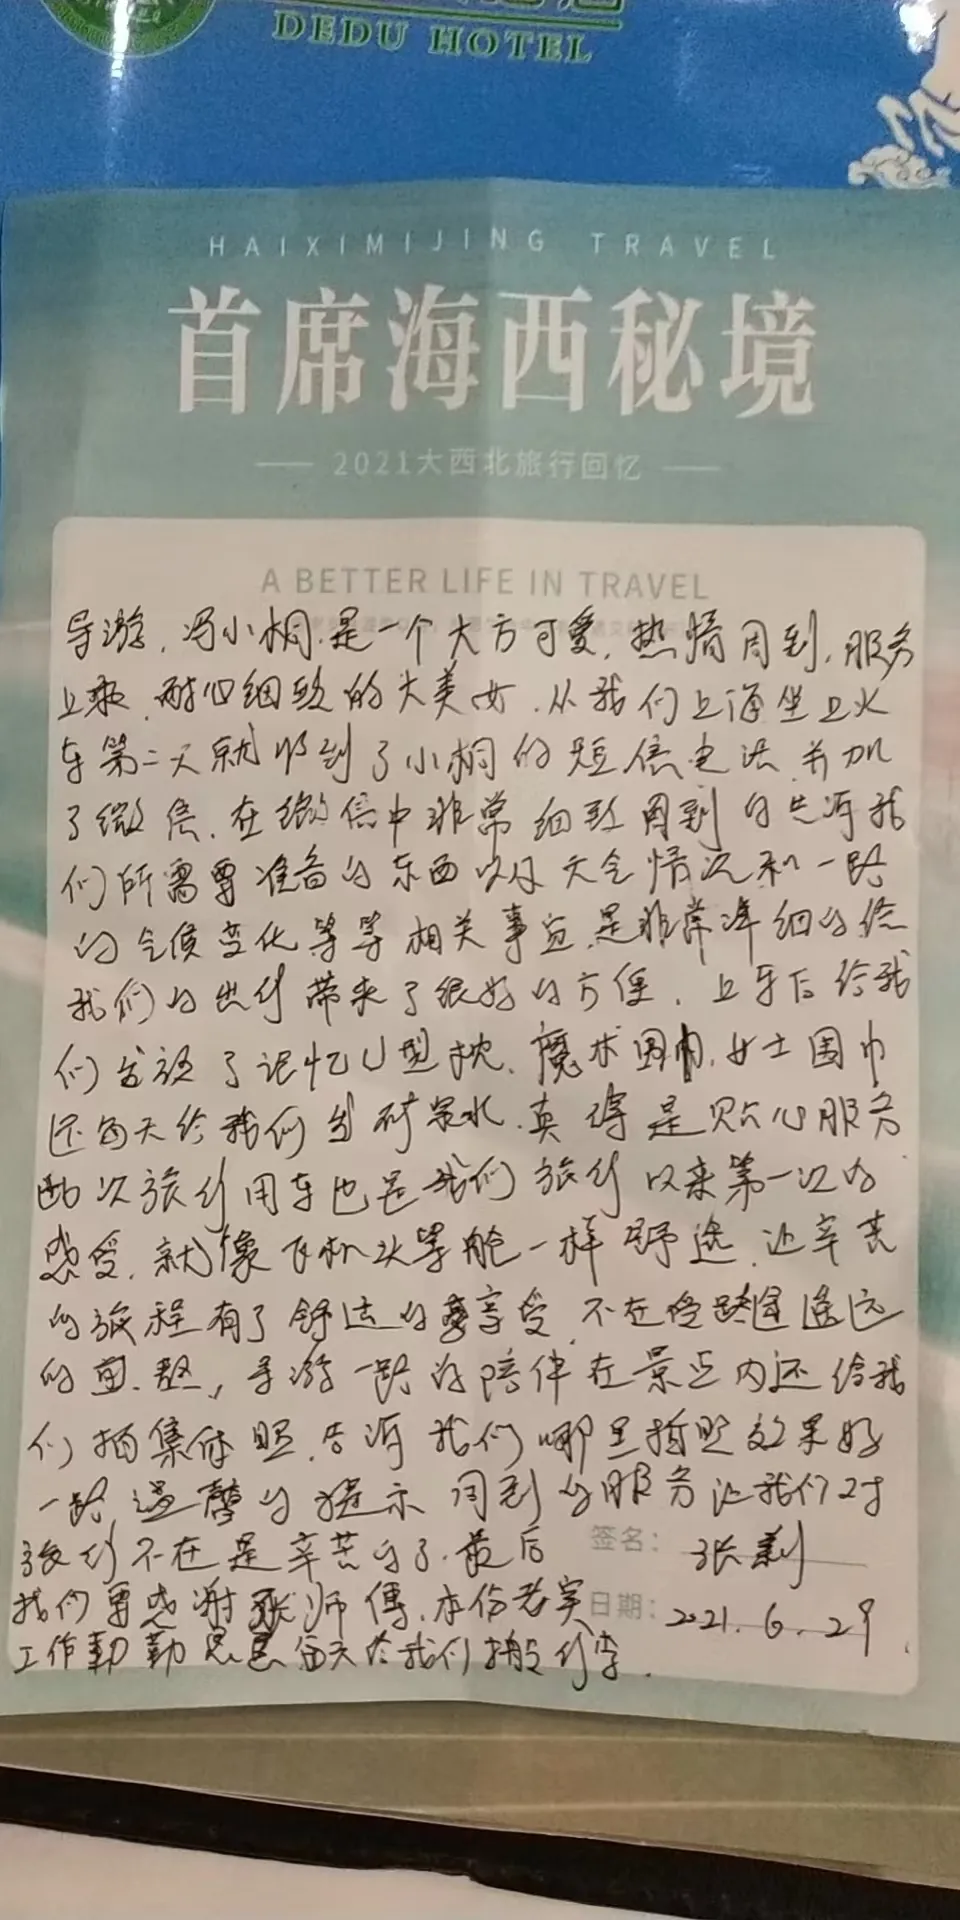 DEDU HOTEL
HAIXIMIJING TRAVEL
首席海西秘境
2021大西北旅行回忆
A BETTER LIFE IN TRAVEL
导游,冯小桐.是一个大方可爱,热情周到,服务
上乘,耐心细致的大美女.从我们上海坐上火
车第二天就收到了小桐的短信电话并加
了微信.在微信中非常细致周到的告诉我
们所需要准备的东西以及天气情况和一路
的气候变化等等相关事宜.是非常详细的给
我们的出行带来了很好的方便.上车后给我
们发放了记忆U型枕.魔术围巾,女士围巾
还每天给我们发矿泉水.真得是贴心服务
此次旅行用车也是我们旅行以来第一次的
感受,就像飞机头等舱一样舒适.让辛苦
的旅程有了舒适的享受.不在受路途遥远
的,导游一路的陪伴在景点内还给我
们拍集体照.告诉我们哪里拍照效果好
一路温馨的提示 周到的服务让我们对
旅行不在是辛苦的了.最后
签名: 张莉
我们要感谢张师傅.本份老实
日期: 2021.6.29.
工作勤勤恳恳每天给我们搬行李.